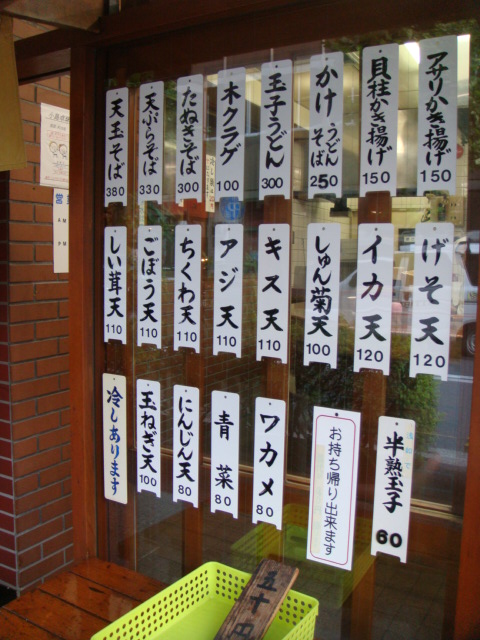 アサリかき揚げ 150
貝柱かき揚げ 150
かけうどんそば 250
玉子うどん 300
木クラゲ 100
たぬきそば 300
天ぷらそば 330
天玉そば 380
げそ天 120
イカ天 120
しゅん菊天 100
キス天 110
アジ天 110
ちくわ天 110
ごぼう天 110
しい茸天 110
半熟玉子 60
お持ち帰り出来ます
ワカメ 80
青菜 80
にんじん天 80
玉ねぎ天 100
冷しあります
五十円